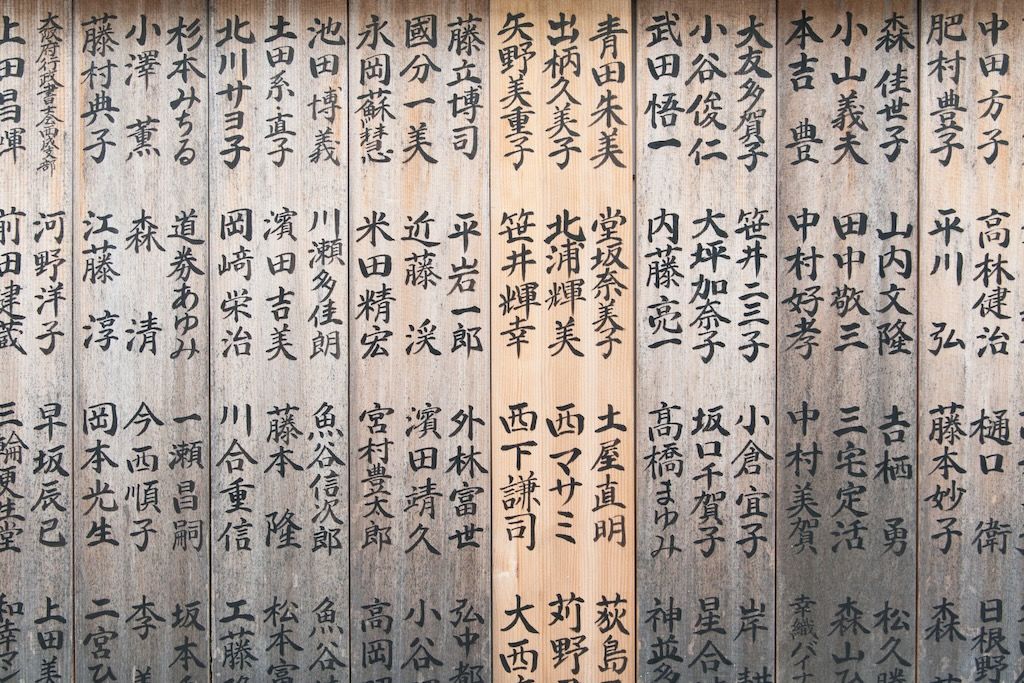 中田方子
高林健治
樋口 衛
日根野
肥村豊子
平川 弘
藤本妙子
森
森 佳世子
山内文隆
吉栖 勇
松久勝
小山義夫
田中敬三
三宅定活
森山ひ
本吉 豊
中村好孝
中村美賀
幸織バイナ
大友多賀子
笹井二三子
小倉宜子
岸
小谷俊仁
大坪加奈子
坂口千賀子
星合
武田悟一
内藤亮一
髙橋まゆみ
神並多
青田朱美
堂坂奈美子
土屋直明
荻島
出柄久美子
北浦輝美
西マサミ
苅野
矢野美重子
笹井輝幸
西下謙司
大西
藤立博司
平岩一郎
外林富世
弘中都
國分一美
近藤 渓
濵田靖久
小谷
永岡蘇慧
米田精宏
宮村豊太郎
高岡
池田博義
川瀬多佳朗
魚谷信次郎
魚谷
土田系直子
濱田吉美
藤本 隆
松本富
北川サヨ子
岡﨑栄治
川合重信
工藤
杉本みちる
道券あゆみ
一瀬昌嗣
坂本
小澤 薫
森 清
今西順子
李
藤村典子
江藤 淳
岡本光生
二宮ひ
河野洋子
早坂辰巳
上田美
上田昌暉
前田健蔵
三輪更生堂
和幸マン